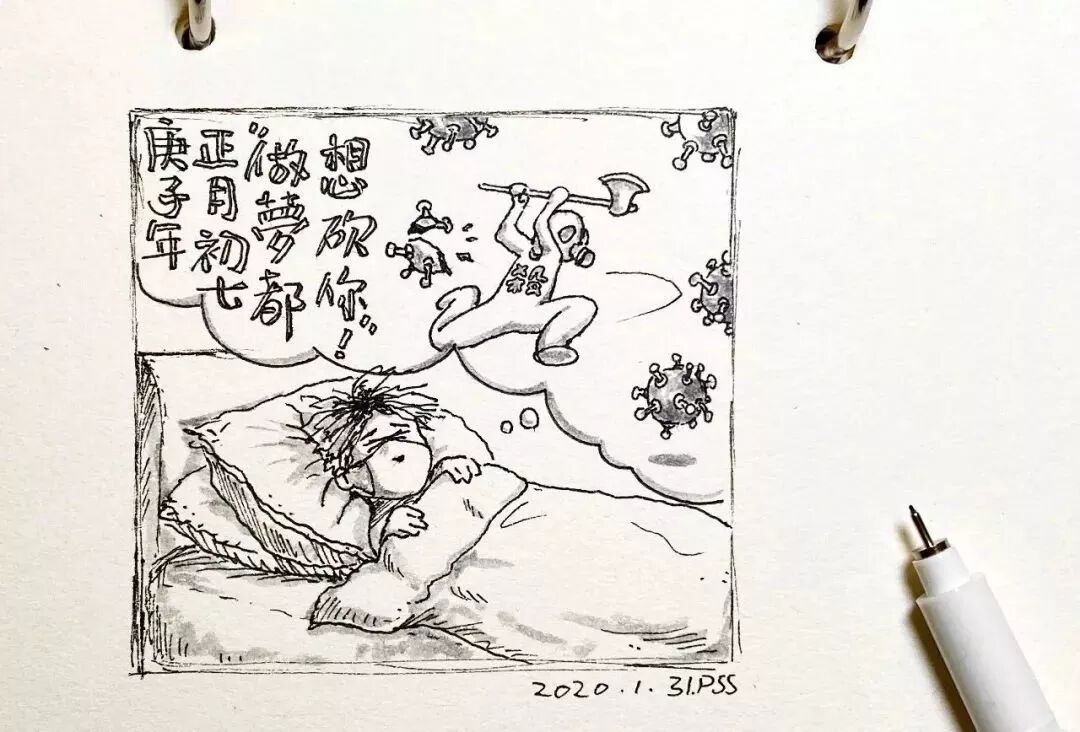 庚子年
正月初七
“做夢都
想砍你！”
2020.1.31.PSS